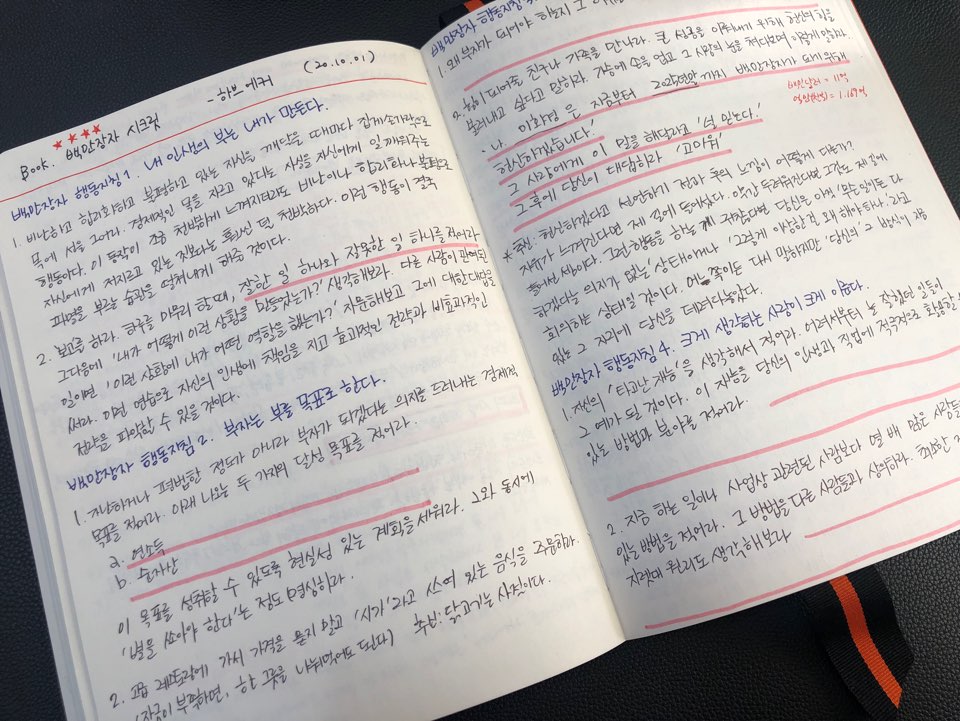 (20.10.01)
Book. 백만장자 시크릿 - 하브 에커
백만장자 행동지침 1. 내 인생의 부는 내가 만든다.
1. 비난하고 합리화하고 불평하고 있는 자신을 깨달을 때마다 집게손가락으로
목에 선을 그어라. 경제적인 목을 자르고 있다는 사실을 자신에게 일깨워주는
행동이다. 이 동작이 조금 천박하게 느껴지더라도 비난이나 합리화나 불평으로
자신에게 저지르고 있는 짓보다는 훨씬 덜 천박하다. 이런 행동이 결국
파멸을 부를 습관을 떨쳐내게 해줄 것이다.
2. 보고를 하라. 하루를 마무리 할 때, 잘한 일 하나와 잘못한 일 하나를 적어라
그 다음에 '내가 어떻게 이런 상황을 만들었는가?' 생각해보라. 다른 사람이 관여된
일이면 '이런 상황에 내가 어떤 역할을 했는가?' 자문해보고 그에 대한 대답을
써라. 이런 연습으로 자신의 인생에 책임을 지고 효과적인 전략과 비효과적인
전략을 파악할 수 있을 것이다.
백만장자 행동지침 2. 부자는 부를 목표로 한다.
1. 지나하거나 평범한 정도가 아니라 부자가 되겠다는 의지를 드러내는 경제적
목표를 적어라. 아래 나오는 두 가지의 달성 목표를 적어라.
a. 연소득
b. 순자산
이 목표를 성취할 수 있도록 현실성 있는 계획을 세워라. 그와 동시에
'별을 쏘아야 한다'는 점도 명심하라.
2. 고급 레스토랑에 가서 가격을 묻지 말고 '시가'라고 쓰여 있는 음식을 주문하라.
(자금이 부족하면, 한 접시를 나눠먹어도 된다) 추신: 닭고기는 사절이다.
백만장자 행동지침
1. 왜 부자가 되어야 하는지 그
2. 힘이 되어줄 친구나 가족을 만나라. 큰 성공을 이뤄내기 위해 헌신의 힘을
불러내고 싶다고 말하라. 가슴에 손을 얹고 그 사람의 눈을 쳐다보며 이렇게 말하라.
"나, 이화정 은 지금부터 2025년말 까지 백만장자가 되기 위해
헌신하겠습니다."
백만달러 = 11억
= 1.169억
그 사람에게 이 말을 해달라고 '널 믿는다.'
그 후에 당신이 대답하라 '고마워'
* 추신: 헌신하겠다고 선언하기 전과 후의 느낌이 어떻게 다른가?
자유가 느껴진다면 제 길에 들어섰다. 약간 두려워진다면 그것도 제 길에
들어선 셈이다. 그런 행동을 하는 게 귀찮다면 당신은 아직 '무슨 일이든 다
하겠다는 의지가 없는' 상태이거나 '그렇게 이상한 걸 왜 해야 되나.' 라고
회의하는 상태일 것이다. 어느 쪽이든 다시 말하지만 '당신의' 그 방식이 지금
있는 그 자리에 당신을 데려다놓았다.
백만장자 행동지침 4. 크게 생각하는 사람이 크게 이룬다.
1. 자신의 '타고난 재능'을 생각해서 적어라. 어려서부터 늘 잘했던 일들이
그 예가 될 것이다. 이 재능을 당신의 인생과 직업에 적극적으로 활용할 수
있는 방법과 분야를 적어라.
2. 지금 하는 일이나 사업상 관련된 사람보다 몇 배 많은 사람들
있는 방법을 적어라. 그 방법을 다른 사람들과 상의하라. 최소한
지렛대 원리도 생각해보라